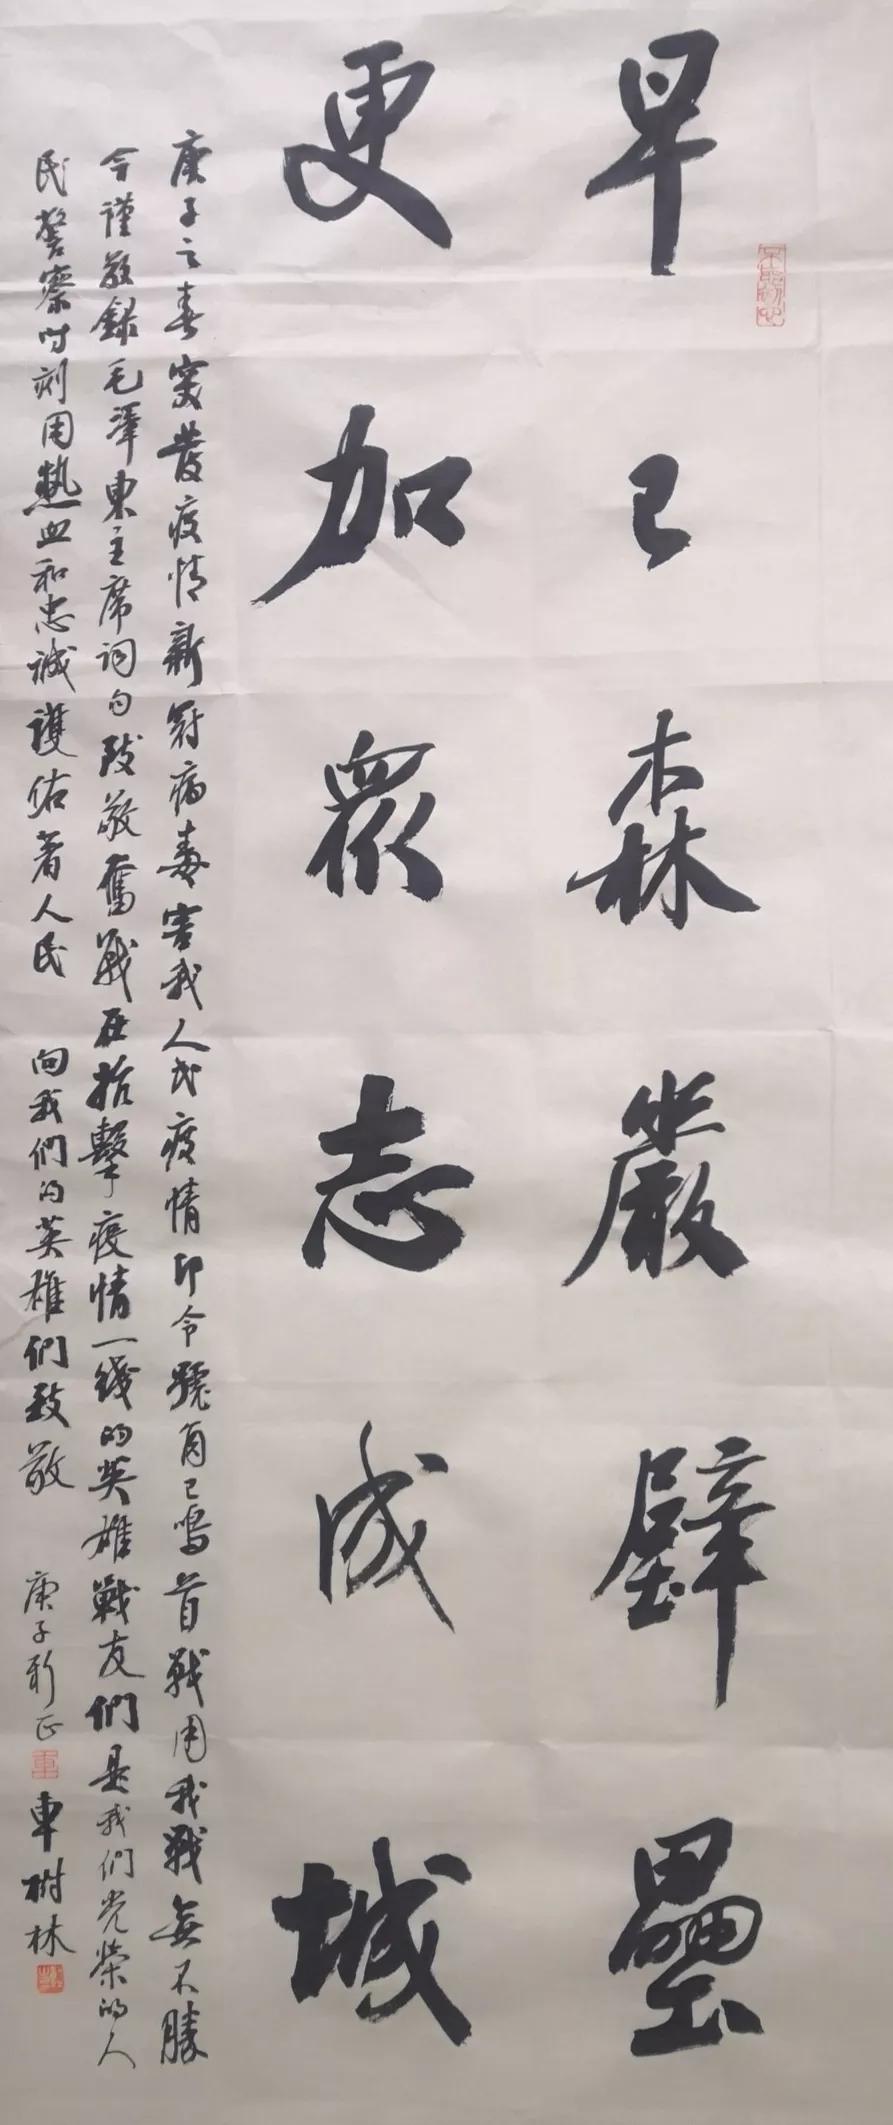 早已森嚴壁壘
更加眾志成城
庚子之春突發疫情新冠病毒害我人民疫情即令號角已鳴首戰用我戰無不勝
今謹敬錄毛澤東主席詞句致敬奮戰在抗擊疫情一綫的英雄戰友們是我們光榮的人
民警察時刻用熱血和忠誠護佑著人民 向我們的英雄們致敬 庚子新正 車樹林